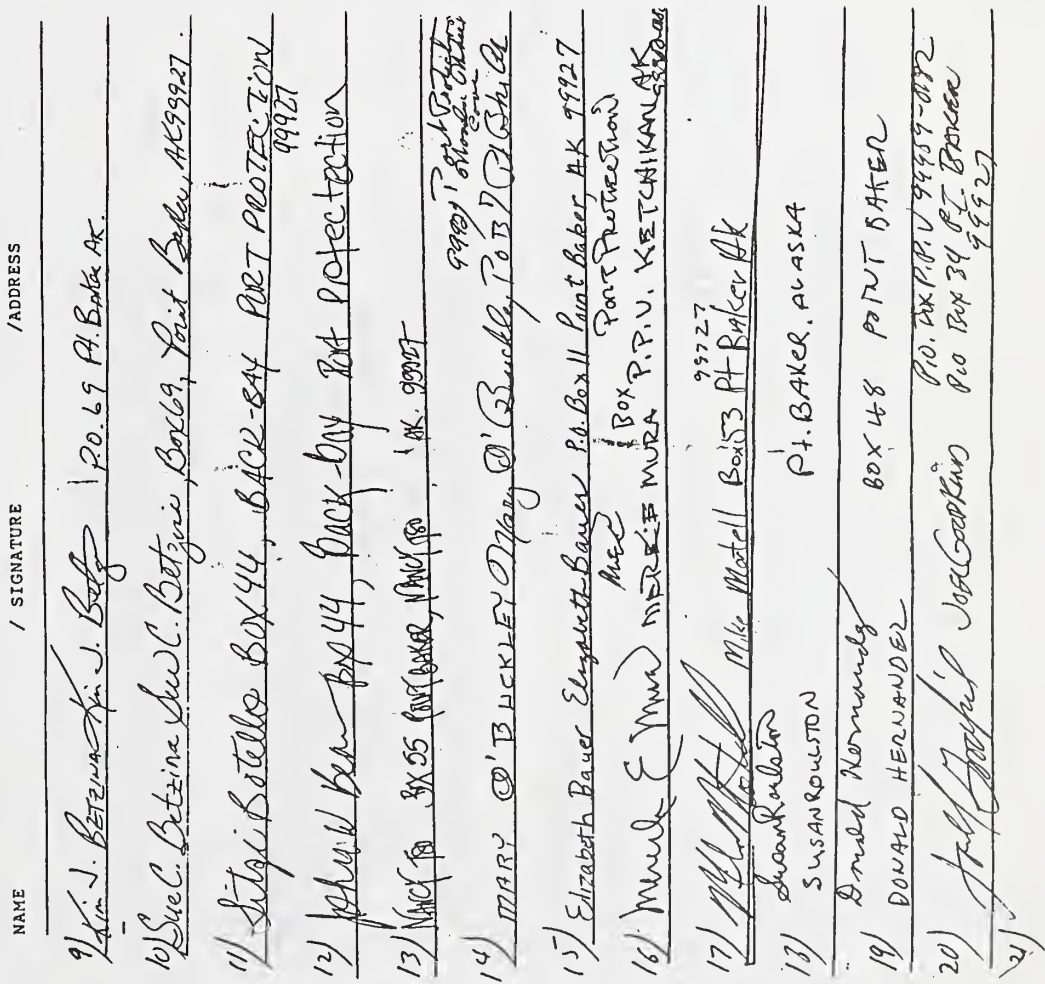 NAME / SIGNATURE /ADDRESS
9) Kim J. BETZINA Kim J. Betz P.O. 69 Pt. Baker AK.
10) Sue C. Betzina Sue C. Betzina, Box 69, Point Baker, AK 99927.
11) Botello BOX 44, BACK-BAY PORT PROTECTION
99927
12) Box 44, back-bay Port Protection
13) NANCY BX 55 POINT BAKER, NANCY AK. 99927
14) MARY O'BUCKLEY Mary O'Buckley
15) Elizabeth Bauer Elizabeth Bauer P.O. Box 11 Point Baker, AK 99927
16) E Mura MURA BOX P.P.V. KETCHIKAN, AK
PORT PROTECTION
17) Mike Motell Box 53 Pt Baker AK
99927
18) Susan Roulston
SUSAN ROULSTON Pt. BAKER, ALASKA
19) Donald Hernandez
DONALD HERNANDEZ BOX 48 POINT BAKER
20) P.O. BOX P.P.V
P.O Box 34 PT. BAKER
99927
21)